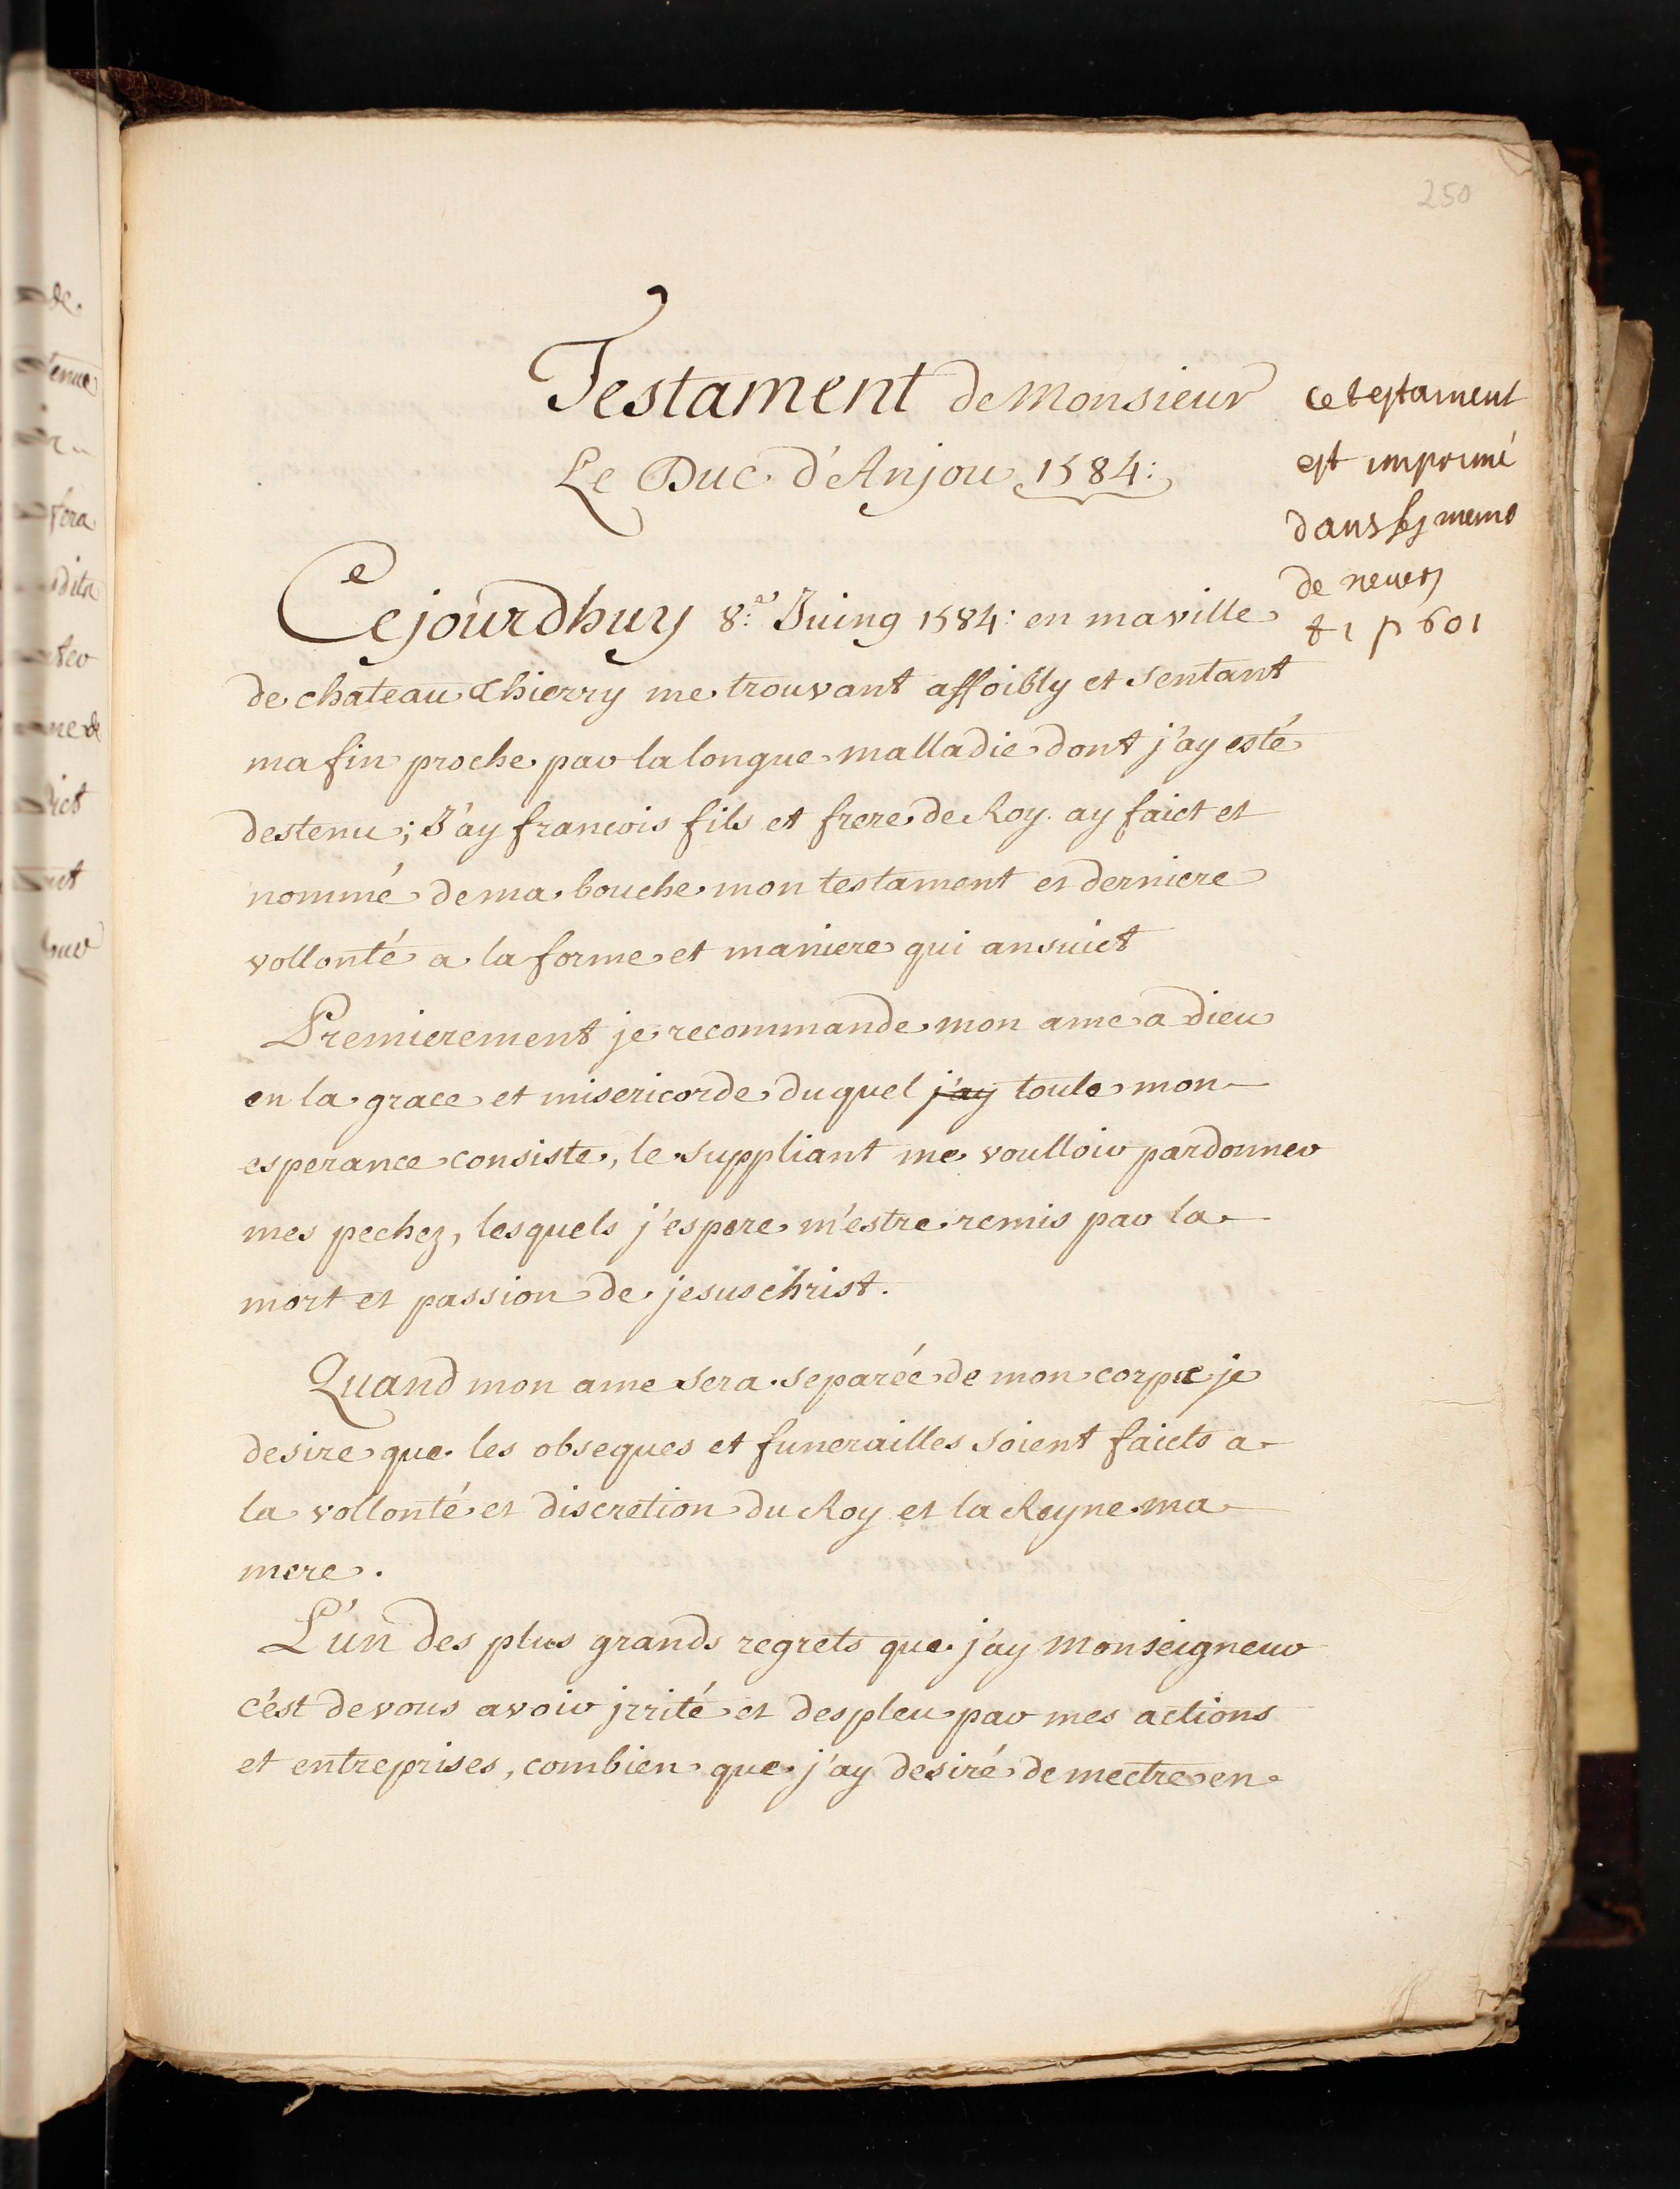 250
Testament de Monsieur
Le Duc d'Anjou 1584:
ce testament
est imprimé
dans les memo
de nevers
t 1 p 601
Cejourdhuy 8.e Juing 1584: en ma ville
de chateau Thierry me trouvant affoibly et sentant
ma fin proche par la longue malladie dont j'ay esté
destenu; J'ay francois fils et frere de Roy ay faict et
nommé de ma bouche mon testament et derniere
vollonté a la forme et maniere qui ansuict
Premierement je recommande mon ame a Dieu
en la grace et misericorde duquel j'ay toute mon
esperance consiste, le suppliant me voulloir pardonner
mes pechez, lesquels j'espere m'estre remis par la
mort et passion de jesus christ.
Quand mon ame sera separée de mon corps je
desire que les obseques et funerailles soient faicts a
la vollonté et discretion du Roy et la Reyne ma
mere.
L'un des plus grands regrets que j'ay Monseigneur
c'est de vous avoir jrrité et despleu par mes actions
et entreprises, combien que j'ay desiré de mectre en